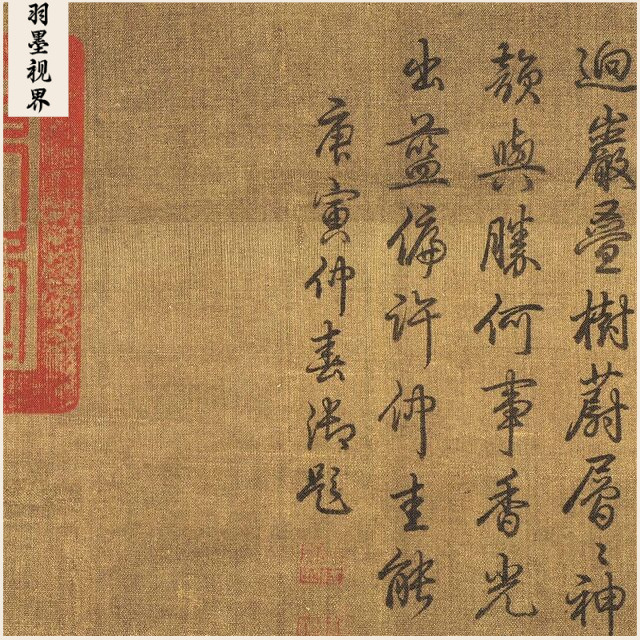 迴巖疊樹蔚層〻神
韻與勝何事香光
出藍偏許仲圭能
庚寅仲春御題
羽墨视界